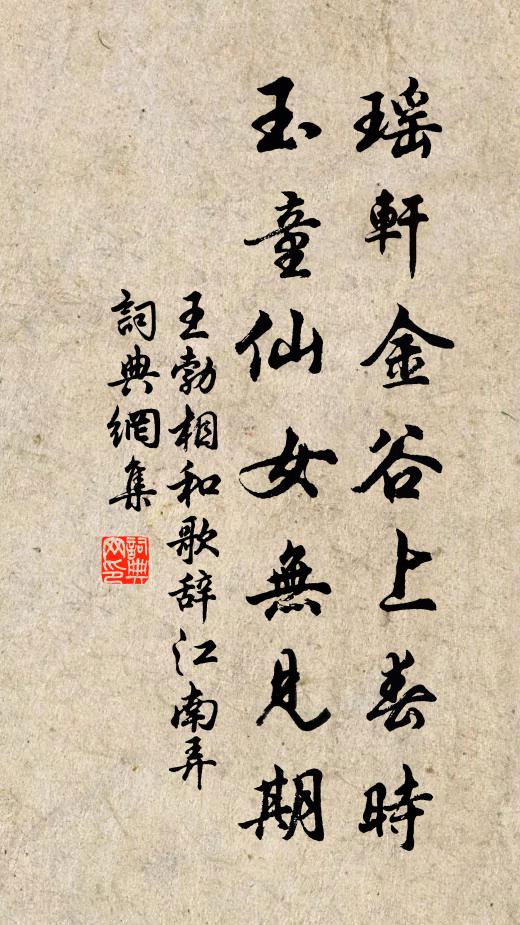 瑶軒金谷上春時
玉童仙女無見期
王勃相和歌辞江南弄
詞典網集
詞典网印